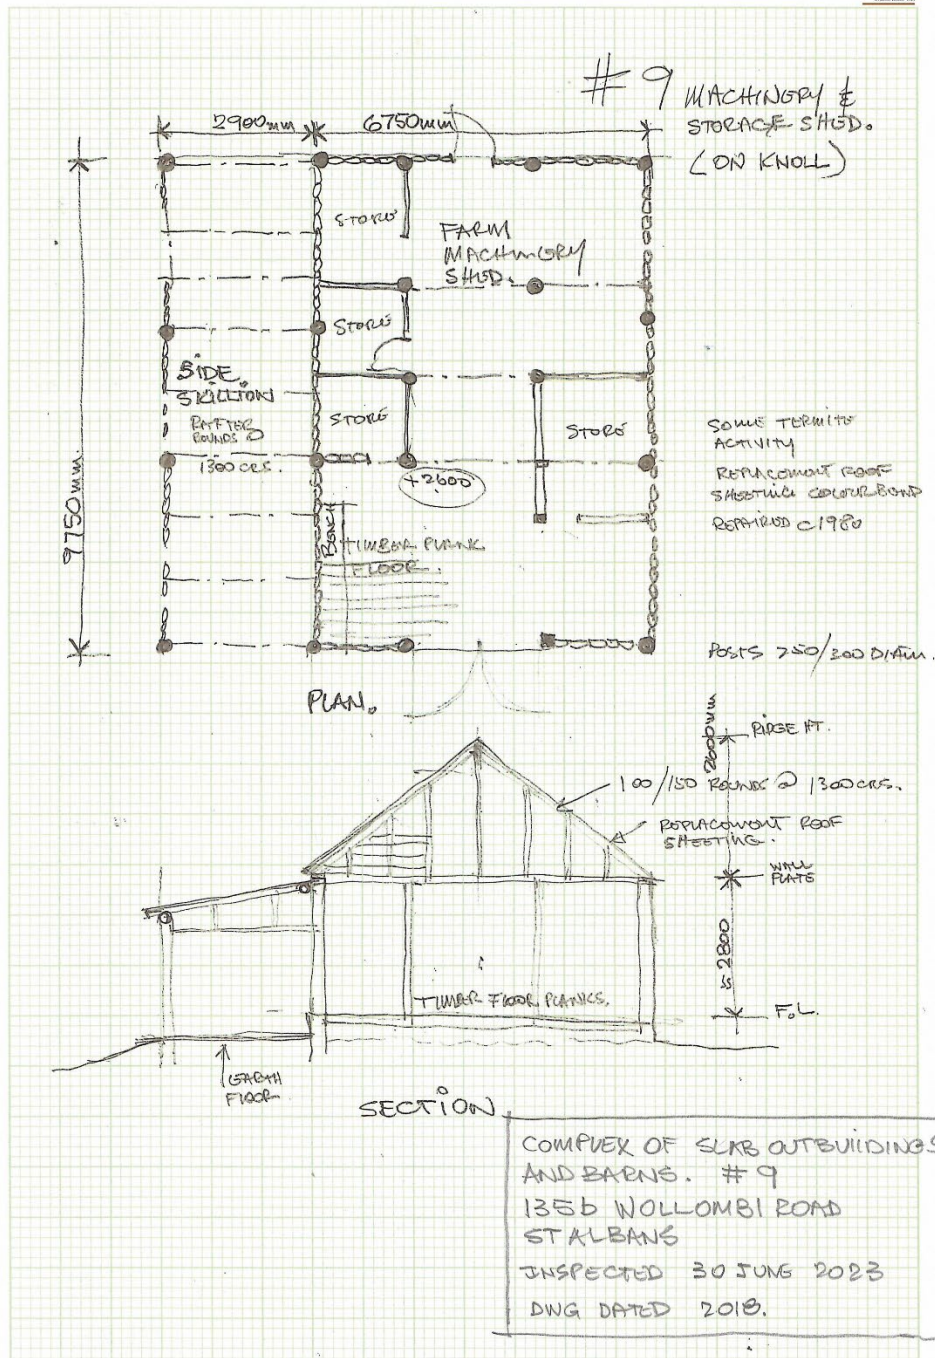 # 9 MACHINERY &
STORAGE SHED.
(ON KNOLL)
2900mm
6750mm
9750mm
STORE
FARM
MACHINERY
SHED.
STORE
SIDE
SKILLION
RAFTER
ROUNDS @
1300 CRS.
STORE
STORE
+2600
BENCH
TIMBER PLANK
FLOOR.
SOME TERMITE
ACTIVITY
REPLACEMENT ROOF
SHEETING COLOURBOND
REPAIRED C1980
POSTS 250/300 DIAM.
PLAN.
2600mm
RIDGE HT.
100/150 ROUNDS @ 1300 CRS.
REPLACEMENT ROOF
SHEETING.
WALL
PLATE
≈ 2800
TIMBER FLOOR PLANKS.
F.L.
EARTH
FLOOR
SECTION
COMPLEX OF SLAB OUTBUILDINGS
AND BARNS. # 9
135b WOLLOMBI ROAD
ST ALBANS
INSPECTED 30 JUNE 2023
DWG DATED 2018.